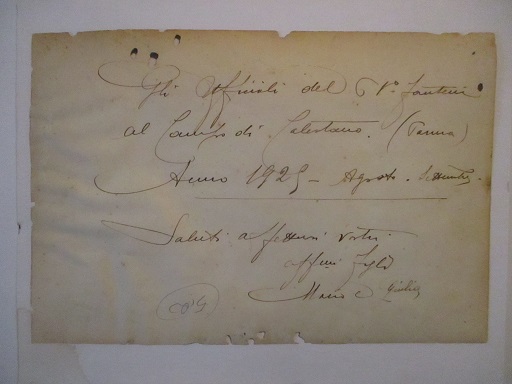 Gli Ufficiali del 6° Fanteria
al Campo di Calestano. (Parma)
Anno 1925 - Agosto - Settembre -
Saluti affettuosi vostri
aff.mi figli
Mario e